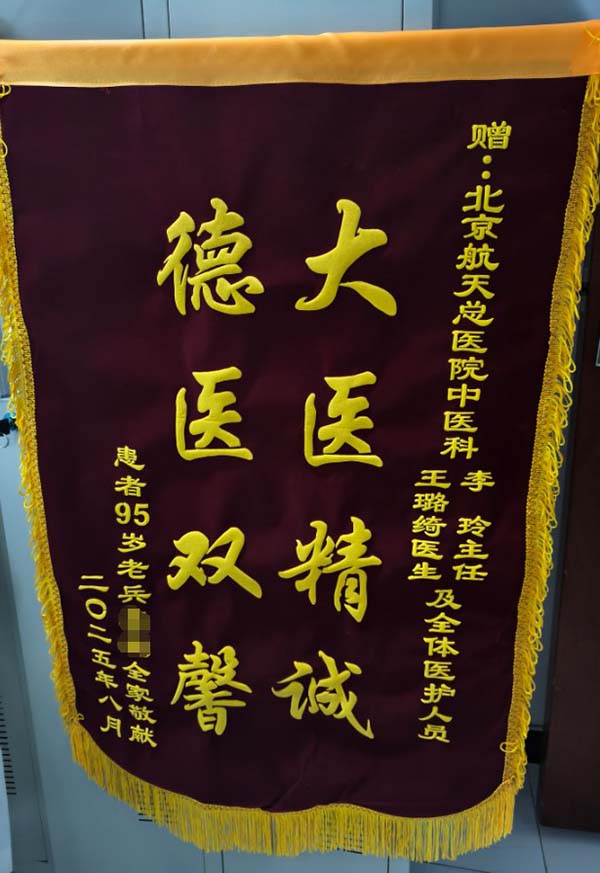 赠：北京航天总医院中医科
李玲主任
王璐绮医生
及全体医护人员
大医精诚
德医双馨
患者95岁老兵 全家敬献
二〇二五年八月